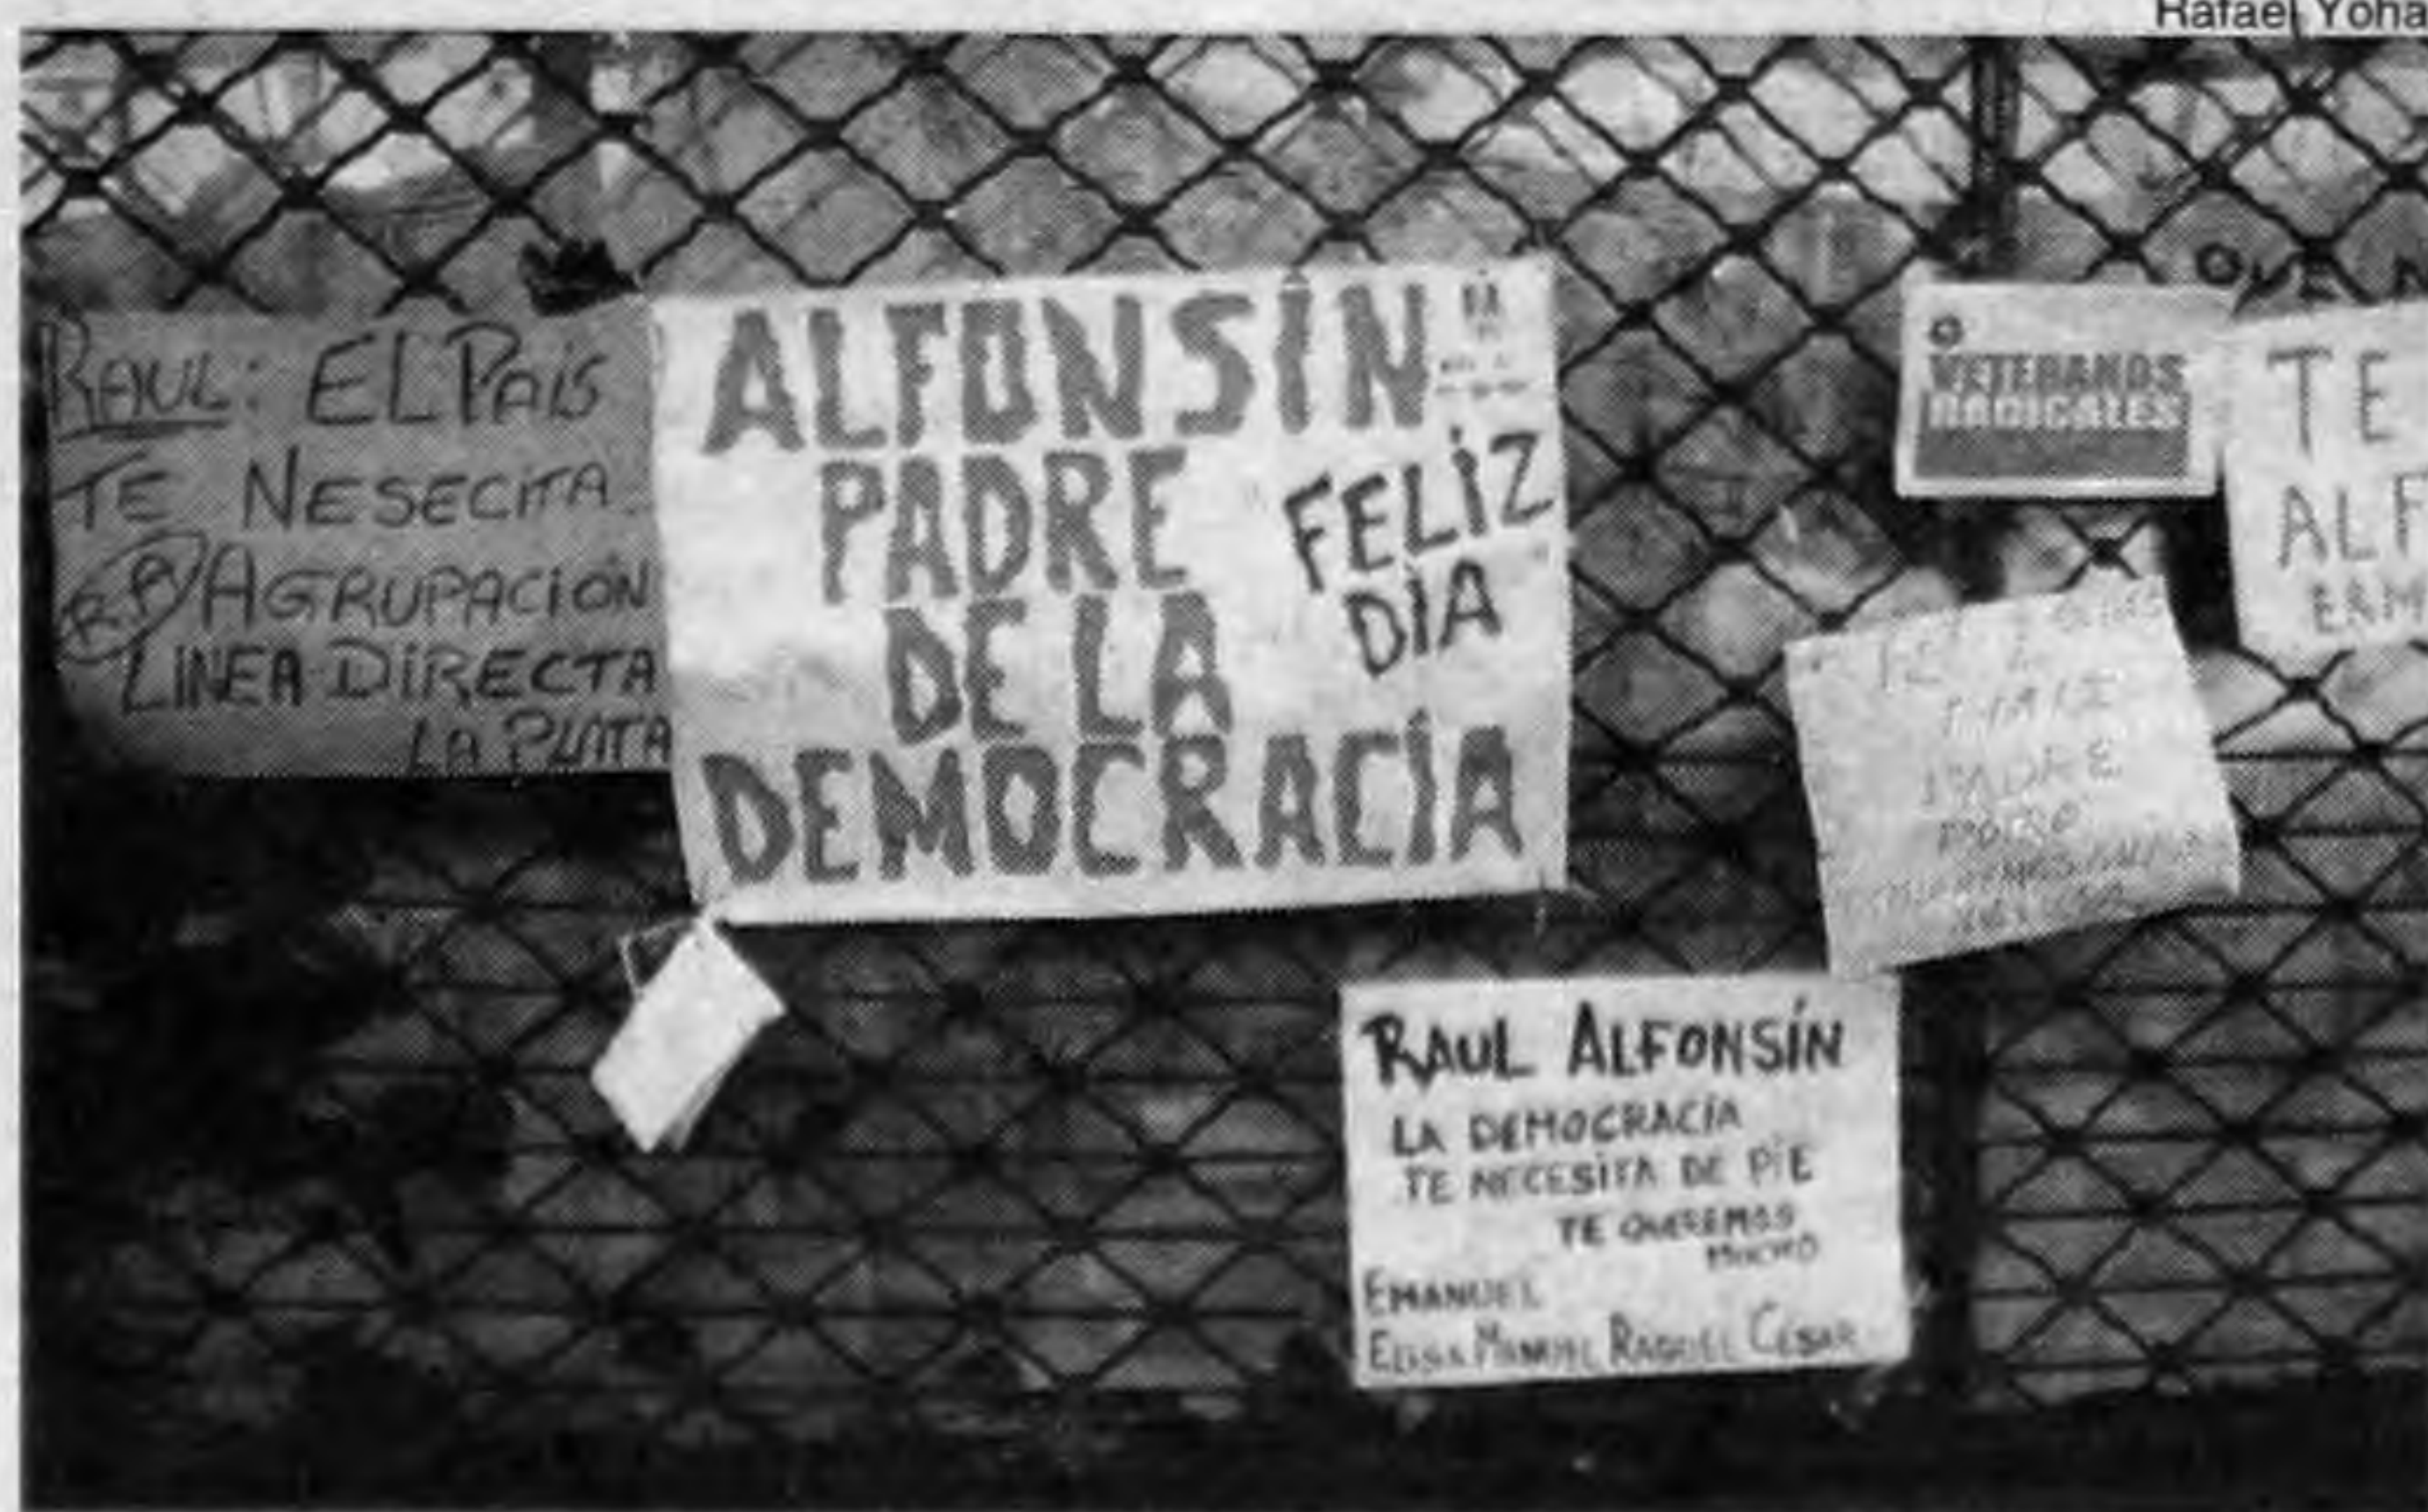 Rafael Yoha
RAUL: EL PAÍS
TE NESECITA
RA AGRUPACIÓN
LINEA DIRECTA
LA PLATA
ALFONSÍN
PADRE
DE LA
DEMOCRACÍA
FELÍZ
DÍA
VETERANOS
RADICALES
QUE N
TE
ALF
ERM
TE
PADRE
RAUL ALFONSÍN
LA DEMOCRACÍA
TE NECESITA DE PIE
TE QUEREMOS
MUCHO
EMANUEL
ELISA MANUEL RAQUEL CÉSAR